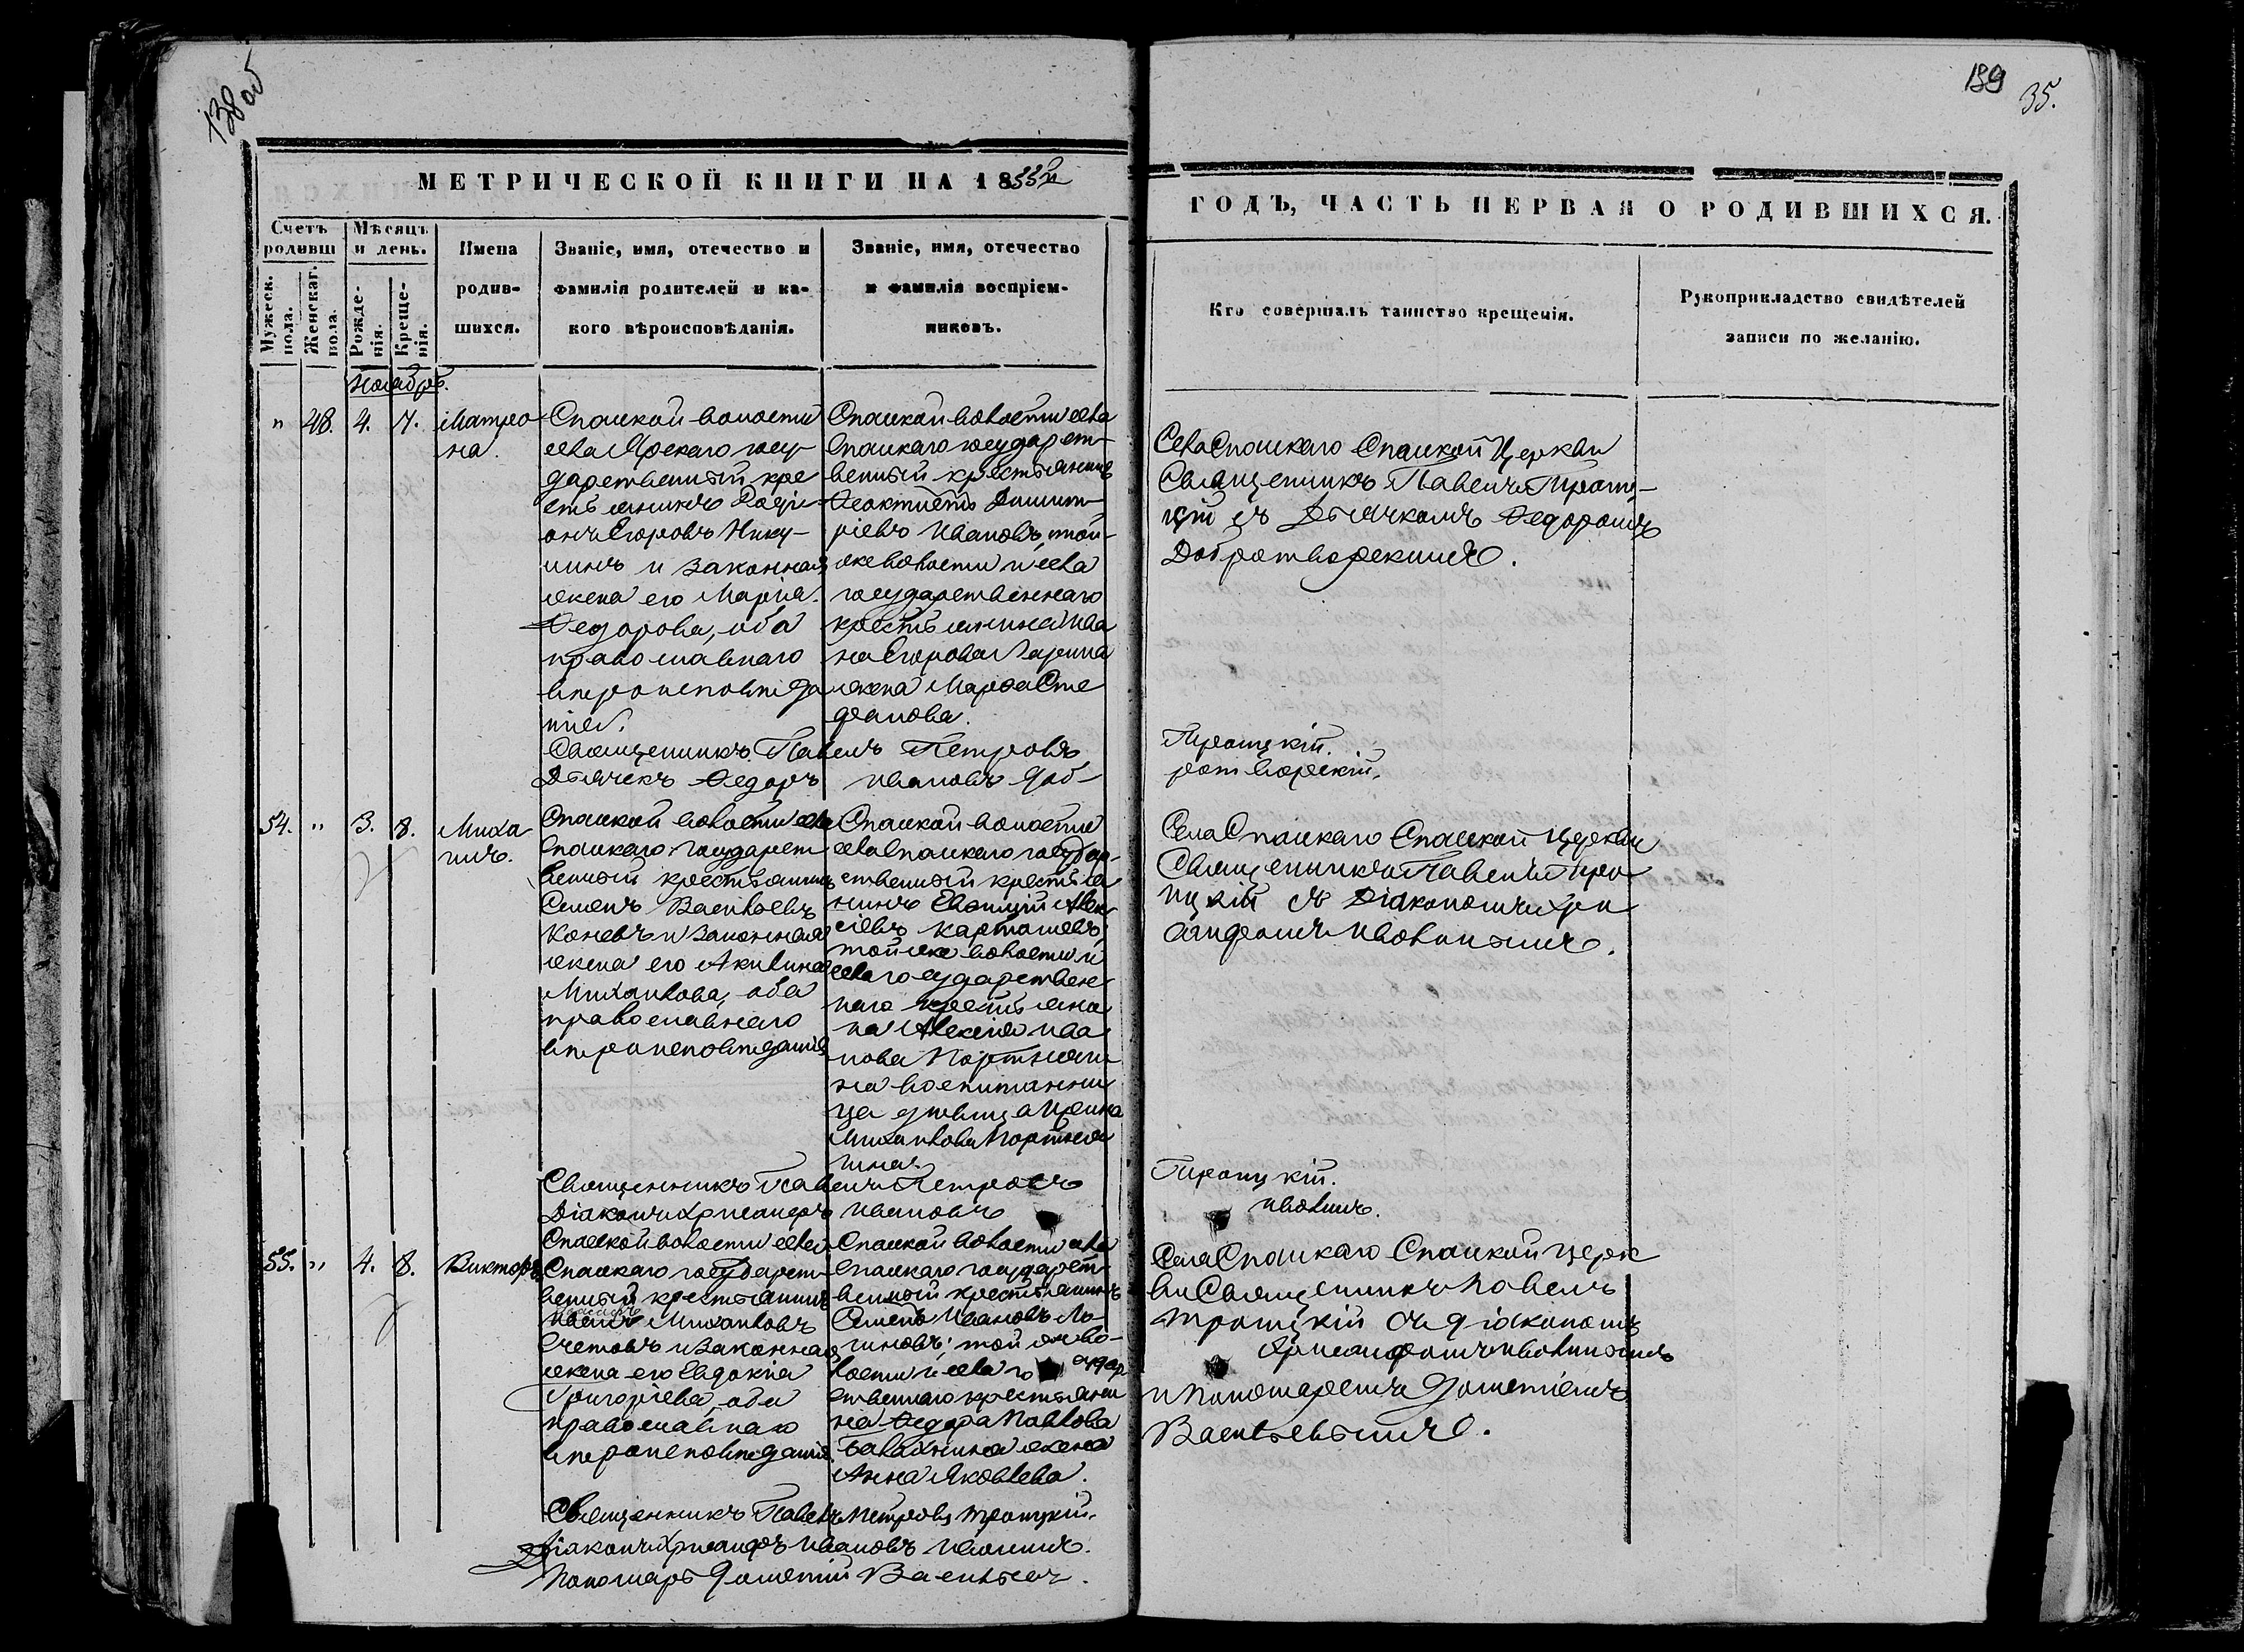 138 об
139
35.
МЕТРИЧЕСКОЙ КНИГИ НА 1855й
ГОДЪ, ЧАСТЬ ПЕРВАЯ О РОДИВШИХСЯ.
Счетъ родивш
Мужеск. пола.
Женскаг. пола.
Мѣсяцъ и день.
Рожде-нія.
Креще-нія.
Имена
родив-
шихся.
Званіе, имя, отечество и
фамилія родителей и ка-
кого вѣроисповѣданія.
Званіе, имя, отечество
и фамилія воспріем-
никовъ.
Кто совершалъ таинство крещенія.
Рукоприкладство свидѣтелей
записи по желанію.
Ноябрь.
" 48. 4. 7.
Матро
на.
Спаской волости
села Ярскаго госу-
дарственный кре
стьянинъ Родіо
онъ Егоровъ
и законная
жена его Марія
Федорова, оба
православнаго
вѣроисповѣда
нія.
Спаской волости села
Спаскаго государст-
венный крестьянинъ
Феоктистъ Димит-
ріевъ Ивановъ, той-
же волости и села
государственнаго
крестьянина Ива
на Егорова Ларина
жена Марѳа Сте
фанова.
Села Спаскаго Спаской Церкви
Священникъ Павелъ Трои-
цкій съ Дьячкомъ Федоромъ
Добротворскимъ.
Священникъ Павелъ Петровъ Троицкій.
Дьячекъ Федоръ Ивановъ Доб-ротворскій.
54. " 3. 8.
Миха
илъ.
Спаской волости села
Спаскаго государст
венный крестьянинъ
Семенъ Васильевъ
Коневъ и законная
жена его Акилина
Михаилова, оба
православнаго
вѣроисповѣданія
Спаской волости
села Спаскаго государ-
ственный крестья
нинъ Алек
сіевъ Карташевъ,
той же волости и
села государствен-
наго крестьяни
на Алексія Ива
нова Портняги-
на воспитанни
ца дѣвица Ирина
Михаилова Портняги
на.
Села Спаскаго Спаской Церкви
Священникъ Павелъ Трои
цкій съ Діакономъ Хри
санфомъ Иволинымъ.
Священникъ Павелъ Петровъ Троицкій.
Діаконъ Хрисанфъ Ивановъ Иволинъ.
55. " 4. 8.
Викторъ
Спаской волости села
Спаскаго государст-
венный крестьянинъ
Михаиловъ
Счетовъ и законная
жена его Евдокіа
Григоріева, оба
православнаго
вѣроисповѣданія.
Спаской волости села
Спаскаго государст-
венный крестьянинъ
Семенъ Ивановъ Ло-
гиновъ; той же во-
лости и села го судар
ственнаго крестьяни
на Федора Павлова
Балахнина жена
Анна Яковлева.
Села Спаскаго Спаской церк
ви Священникъ Павелъ
Троицкій съ діакономъ
Хрисанфомъ Иволинымъ
и Пономаремъ Дометіемъ
Васильевымъ.
Священникъ Павелъ Петровъ Троицкій.
Діаконъ Хрисанфъ Ивановъ Иволинъ.
Пономарь Дометій Васильевъ.